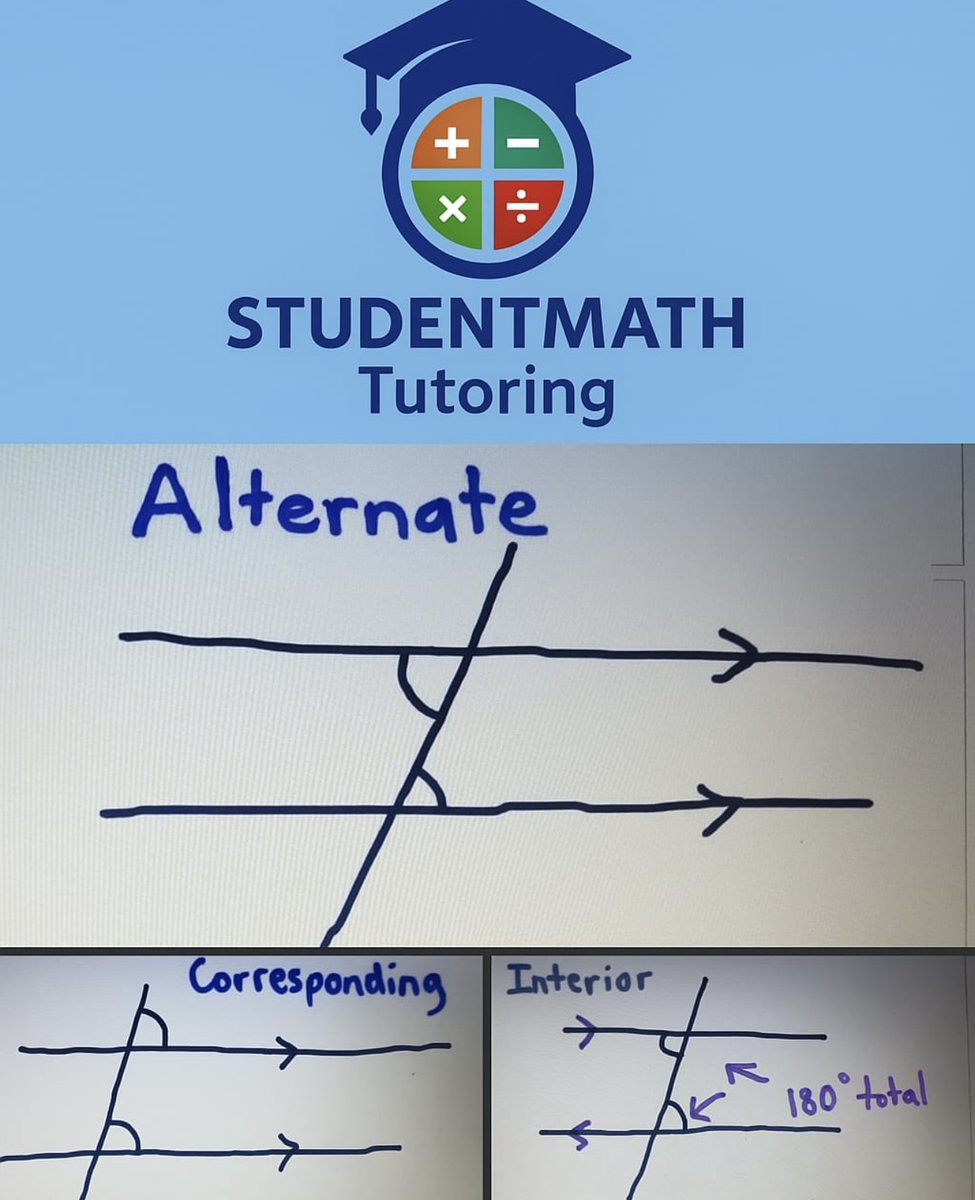 STUDENTMATH
Tutoring
Alternate
Corresponding
Interior
180° total